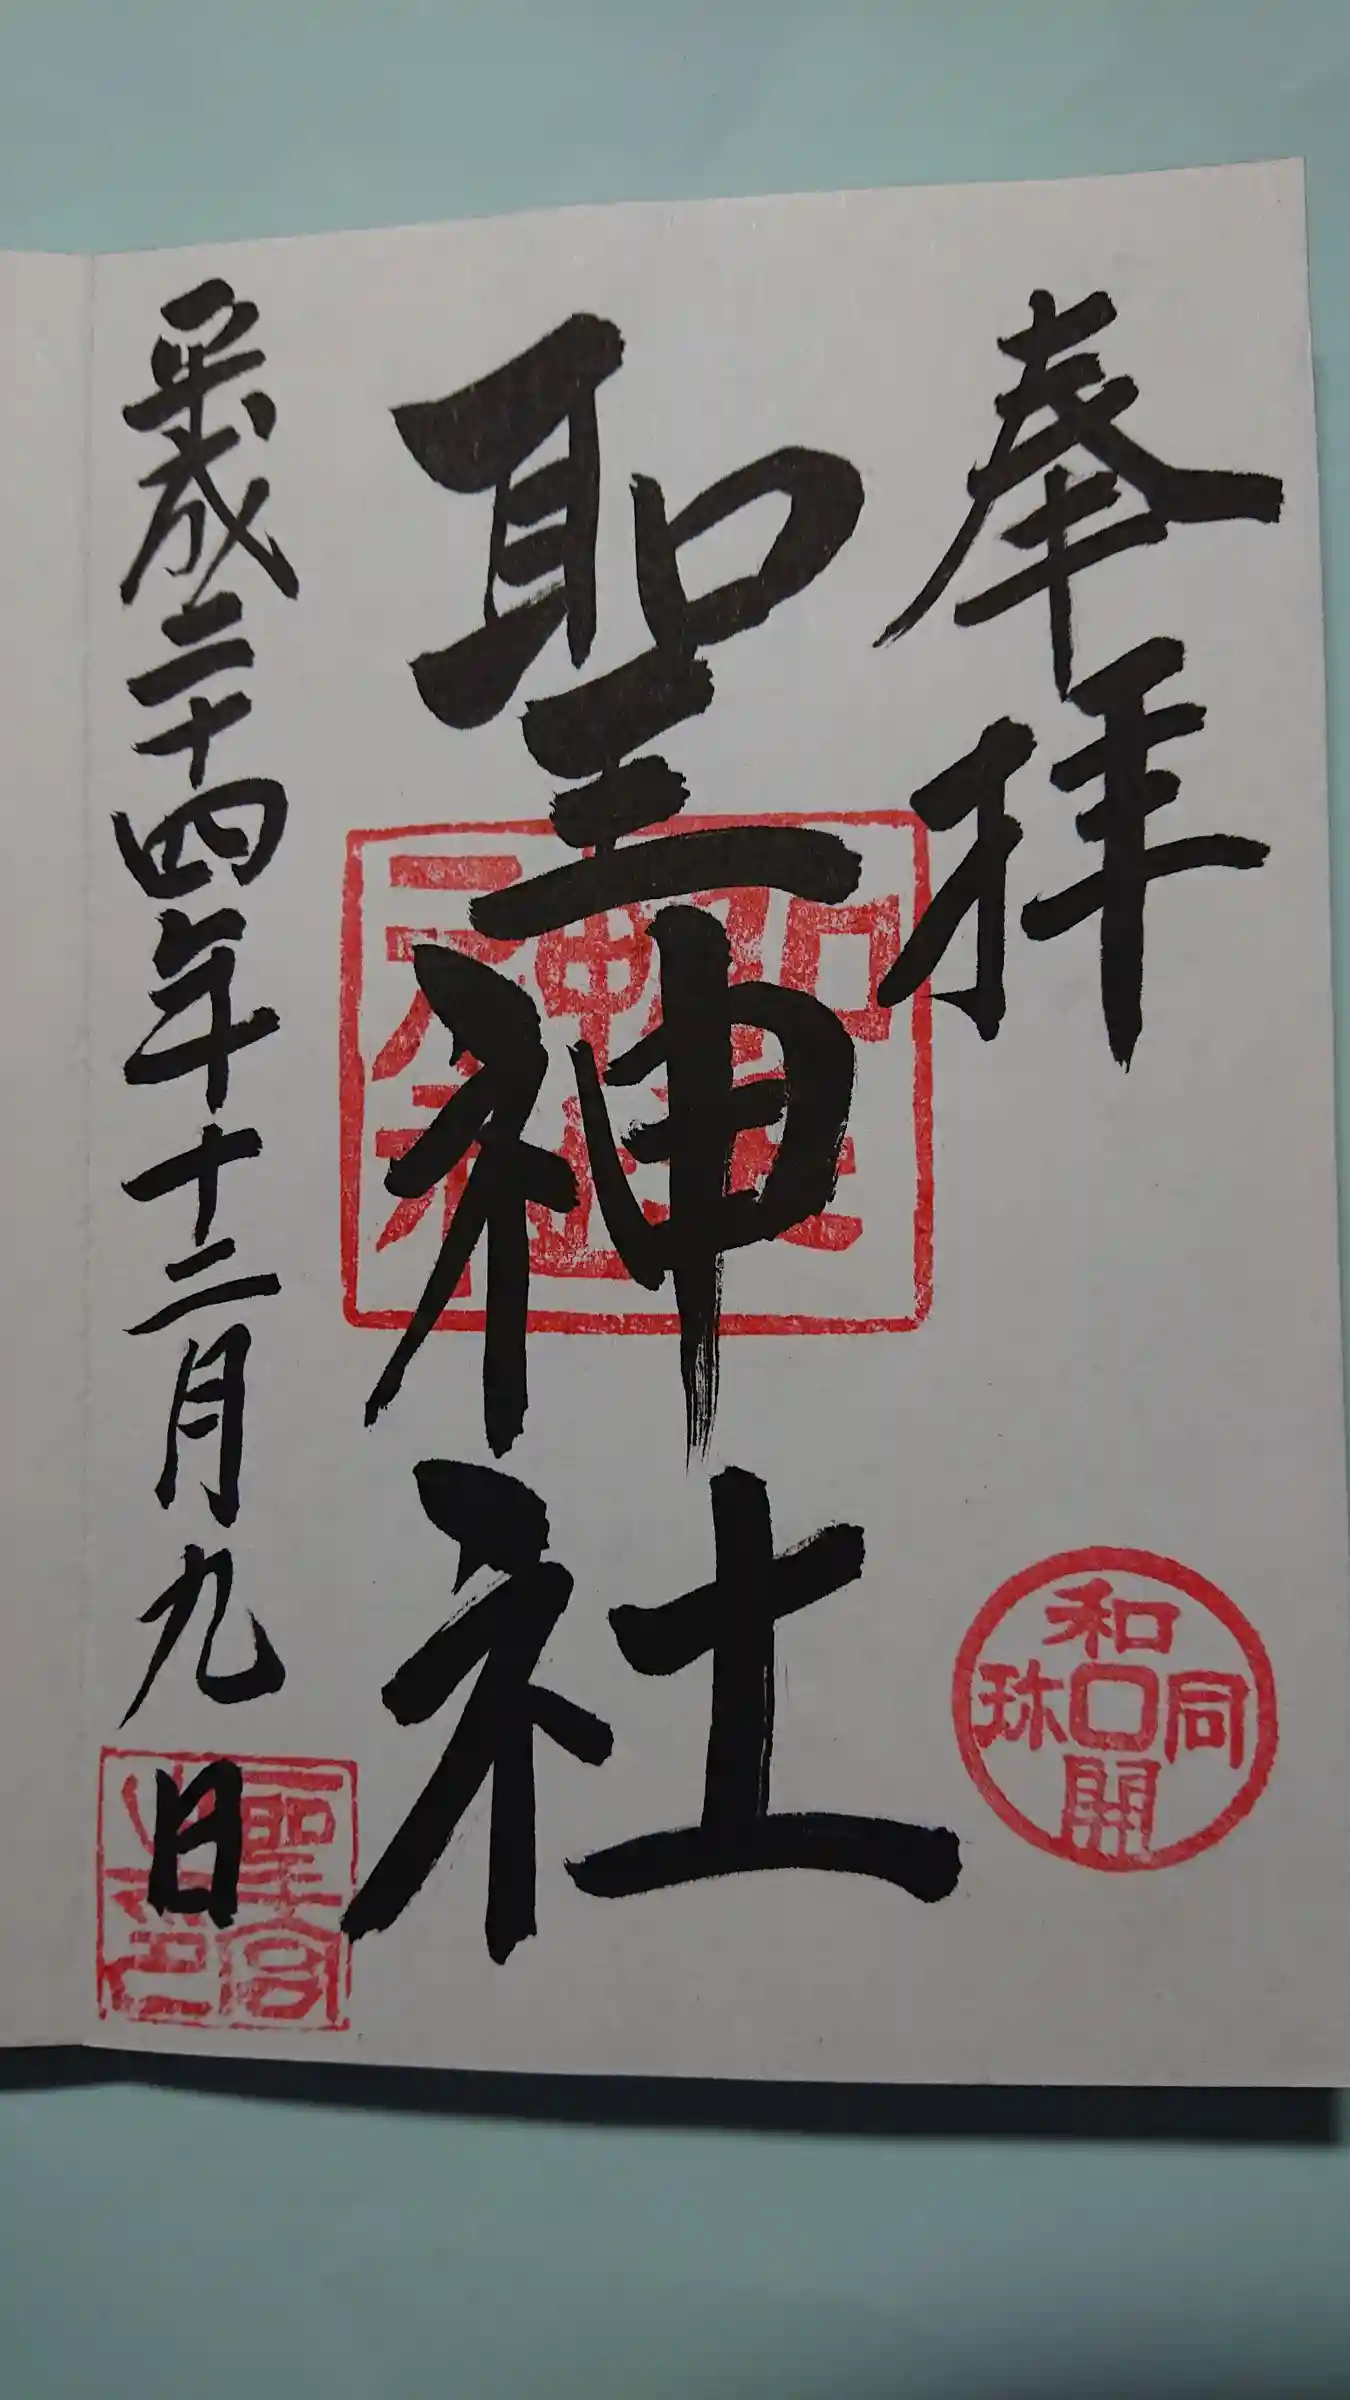 奉拝
和同開珎
聖神社
聖神社
平成二十四年十二月九日
聖宮之印